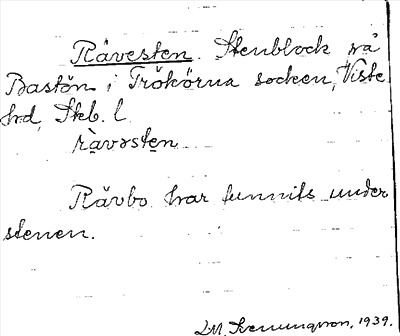 Rävesten. Stenblock på
Bastön i Trökörna socken, Viste
hd, Skb. l.
rävəsten
Rävbo har funnits under
stenen.
1939.